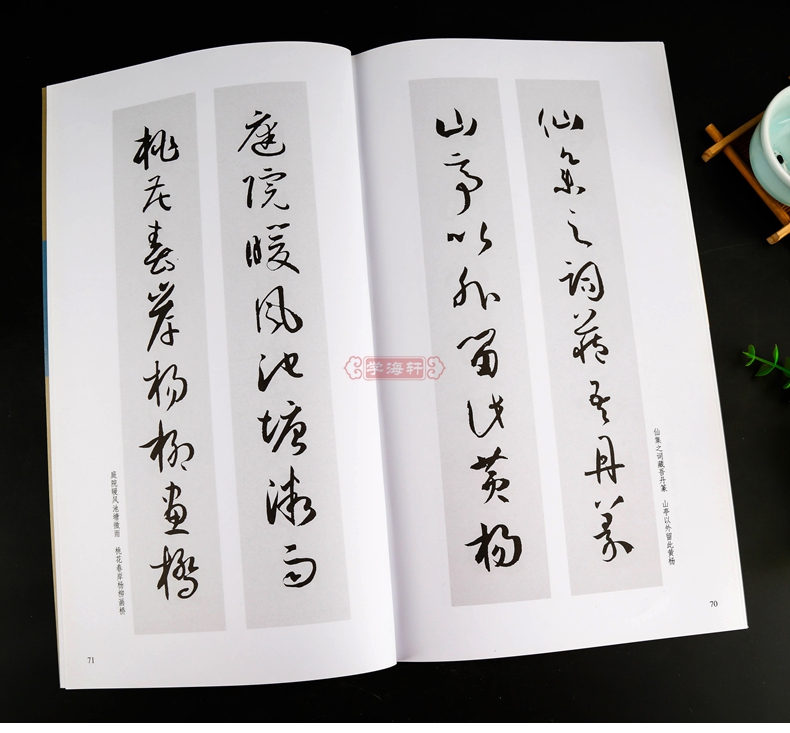 仙集之词藏吾丹篆
山亭以外留此黄杨
仙集之词藏吾丹篆 山亭以外留此黄杨
70
庭院暖风池塘微雨
桃花春岸杨柳画桥
庭院暖风池塘微雨 桃花春岸杨柳画桥
71
学海轩